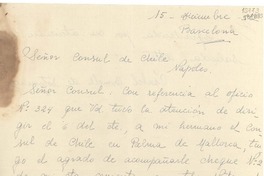 15 - diciembre
Barcelona
Señor Consul de Chile
Nápoles
Señor Consul - Con referencia al oficio
Nº 324 que Vd tuvo la atención de diri-
gir el 6 del ste, a mi humano el Con
sul de Chile en Palma de Mallorca, ten
go el agrado de acompañarle cheque Nº 2